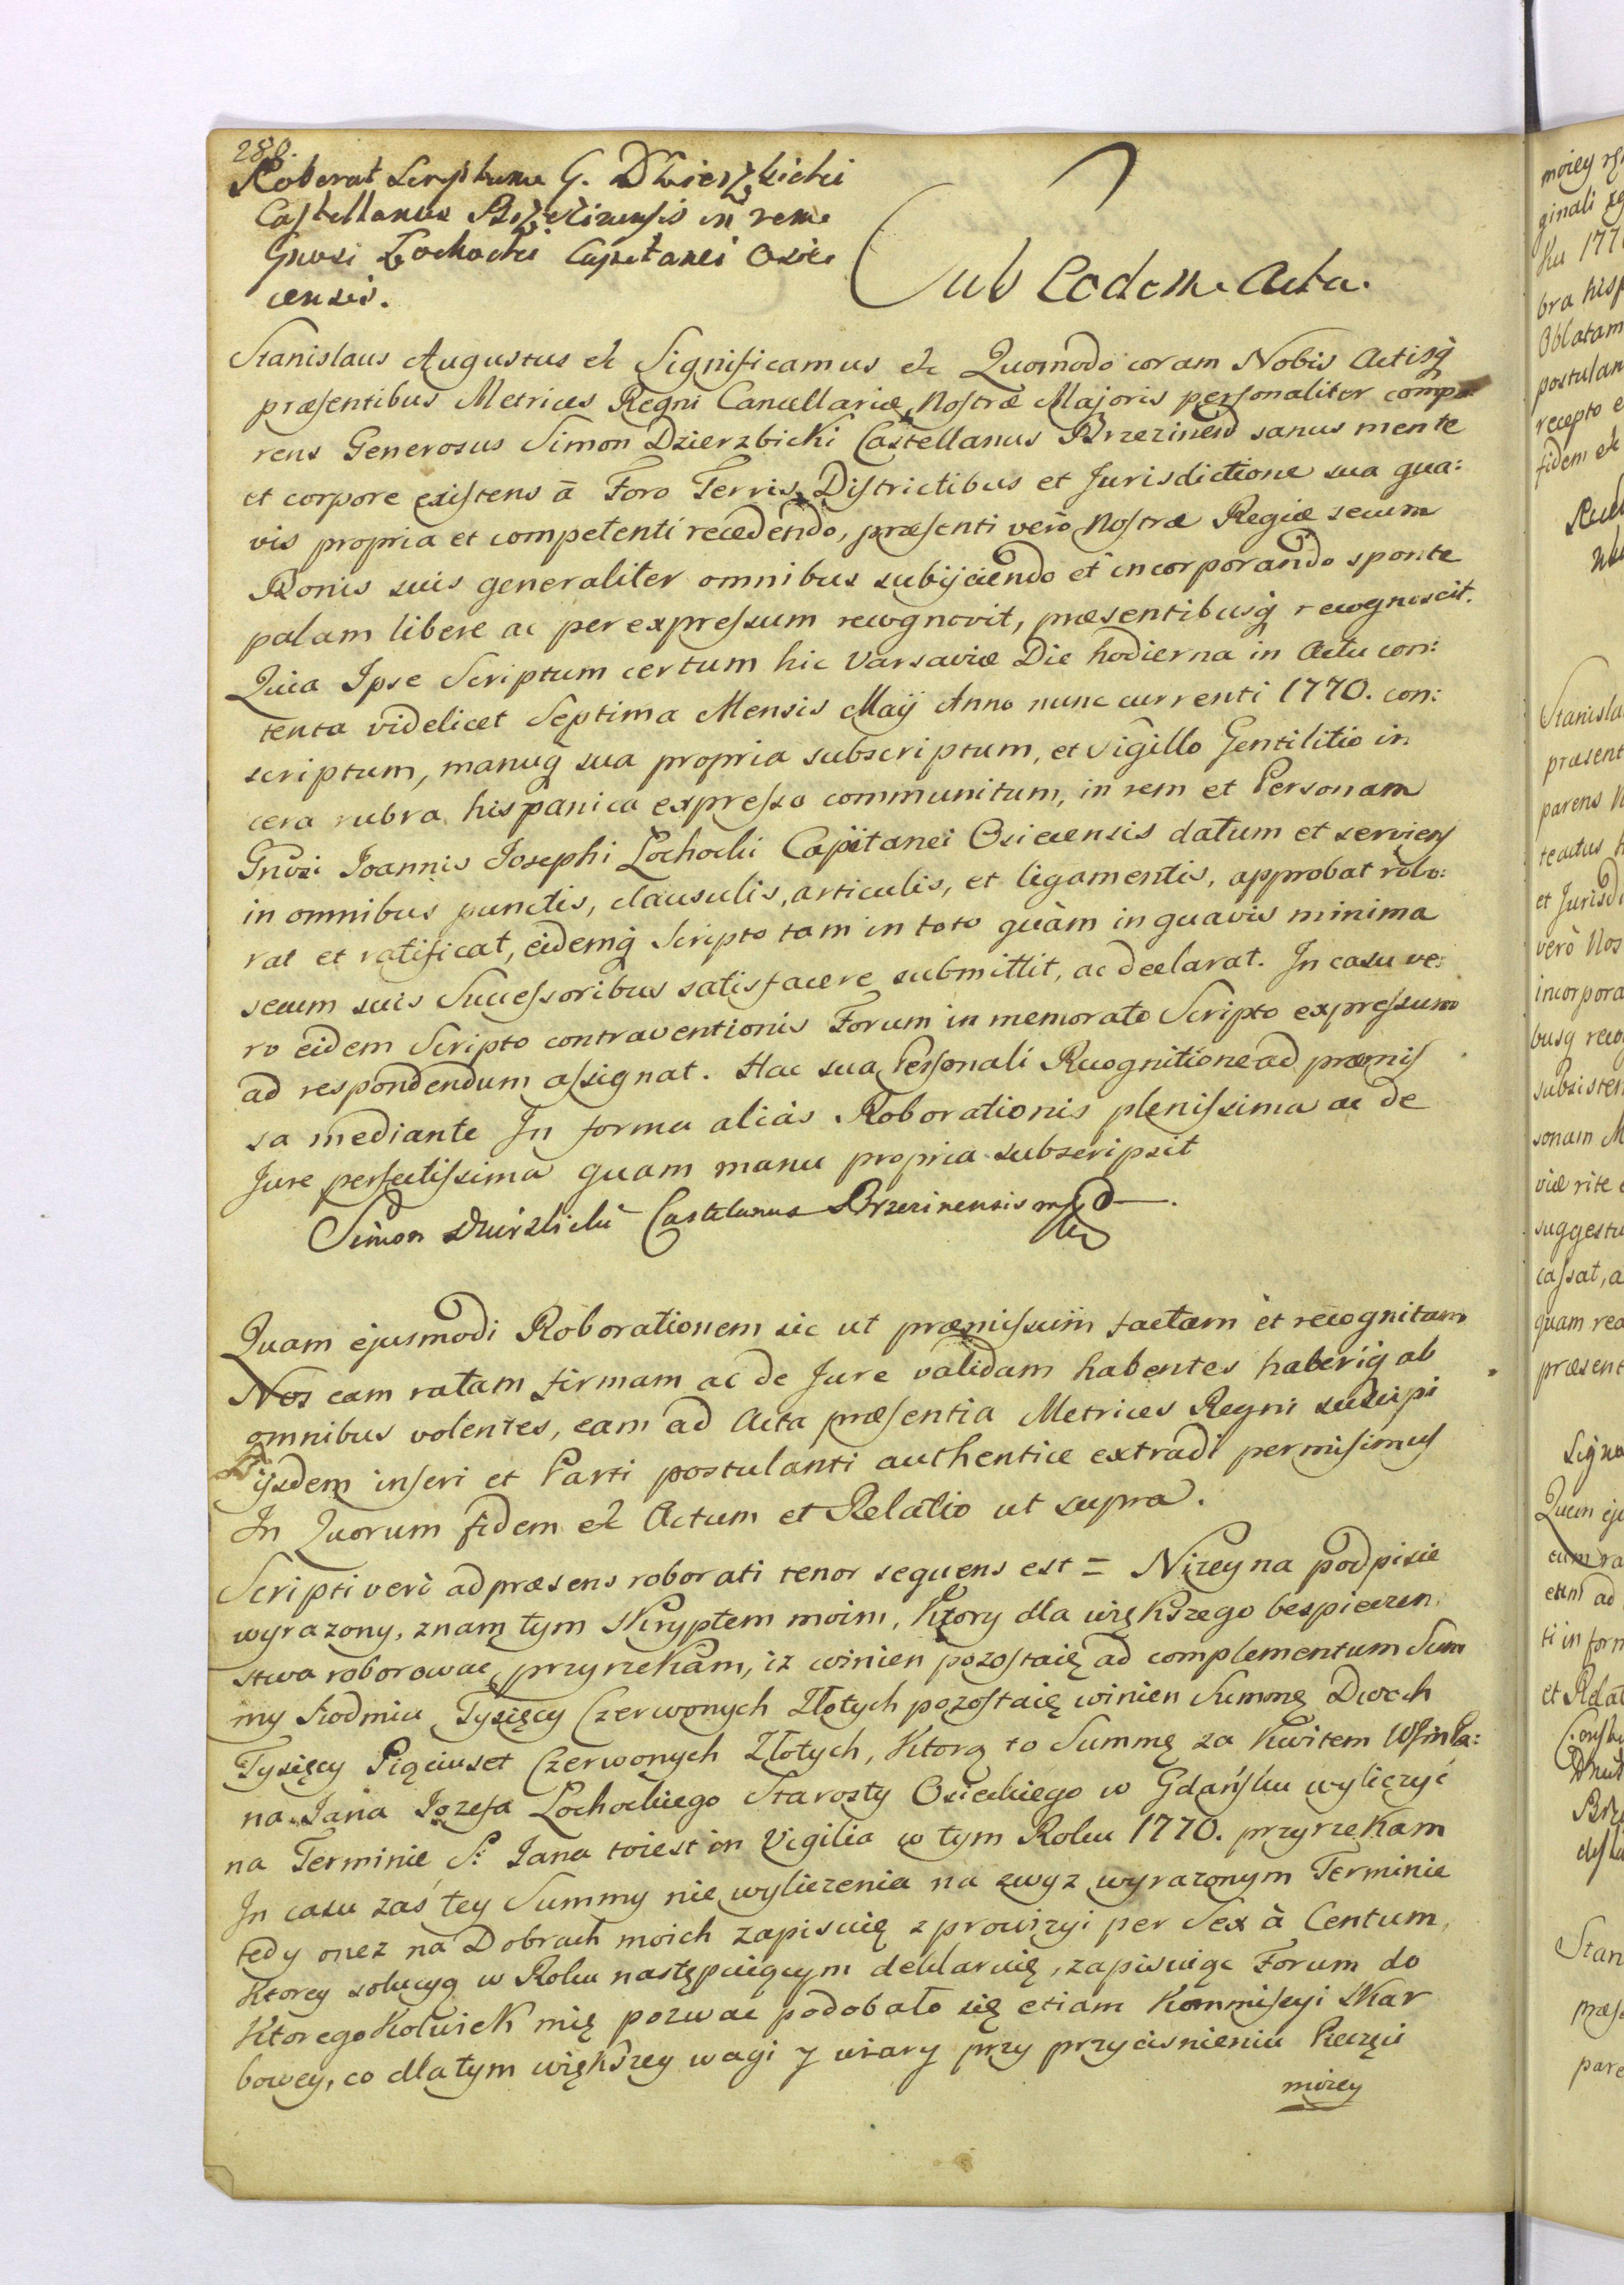 280.
Roborat Scriptum G. Dzierzbicki
Castellanus Brzezinensis in rem
Gnosi Lochocki Capitanei Osie
censis.
Sub Eodem Actu.
Stanislaus Augustus &c Significamus &c Quomodo coram Nobis Actisq
præsentibus Metrices Regni Cancellariæ Nostræ Majoris personaliter compa
rens Generosus Simon Dzierzbicki Castellanus Brzezinens sanus mente
et corpore existens à Foro Terris Districtibus et Jurisdictione sua qua:
vis propria et competenti recedendo, præsenti verò Nostræ Regiæ secum
Bonis suis generaliter omnibus subijciendo et incorporando sponte
palam libere ac per expressum recognovit, præsentibusq recognoscit.
Quia Ipse Scriptum certum hic Varsaviæ Die hodierna in Actu con:
tenta videlicet Septima Mensis Maij Anno nunc currenti 1770. con:
scriptum, manuq sua propria subscriptum, et Sigillo Gentilitio in
cera rubra hispanica expresso communitum, in rem et Personam
Gnosi Joannis Josephi Lochocki Capitanei Osiecensis datum et serviens
in omnibus punctis, clausulis, articulis, et ligamentis, approbat robo:
rat et ratificat, eidemq Scripto tam in toto quàm in quavis minima
secum suis Successoribus satisfacere submittit, ac declarat. In casu ve:
ro eidem Scripto contraventionis Forum in memorato Scripto expressum
ad respondendum assignat. Hac sua Personali Recognitione ad præmis
sa mediante In forma aliàs Roborationis plenissima ac de
Jure perfectissima quam manu propria subscripsit
Simon Dzierzbicki Castelanus Brzezinensis mp
Quam ejusmodi Roborationem sic ut præmissum factam et recognitam
Nos eam ratam firmam ac de Jure validam habentes haberiq ab
omnibus volentes, eam ad Acta præsentia Metrices Regni suscipi
ijsdem inseri et Parti postulanti authentice extradi permisimus
In Quorum fidem &c Actum et Relatio ut supra.
Scripti verò ad præsens roborati tenor sequens est = Nizey na podpisie
wyrazony, znam tym Skryptem moim, Ktory dla większego bespieczen
stwa roborowac przyrzekam, iz winien pozostaię ad complementum Sum
my siodmiu Tysięcy Czerwonych Złotych pozostaię winien Summę Dwoch
Tysięcy Pięciuset Czerwonych Złotych, Ktorą to Summę za Kwitem WJmPa:
na Jana Jozefa Lochockiego Starosty Osieckiego w Gdańsku wyliczyć
na Terminie S: Jana toiest in Vigilia w tym Roku 1770. przyrzekam
In casu zaś tey Summy nie wyliczenia na zwyz wyrazonym Terminie
tedy onez na Dobrach moich zapisuię z prowizyi per Sex à Centum,
Ktorey solucyą w Roku następuiącym deklaruię, zapisuiąc Forum do
Ktorego Kolwiek mię pozwac podobało się etiam Kommissyi Skar
bowey, co dla tym większey wagi y wiary przy przycisnieniu Pieczęci
moiey